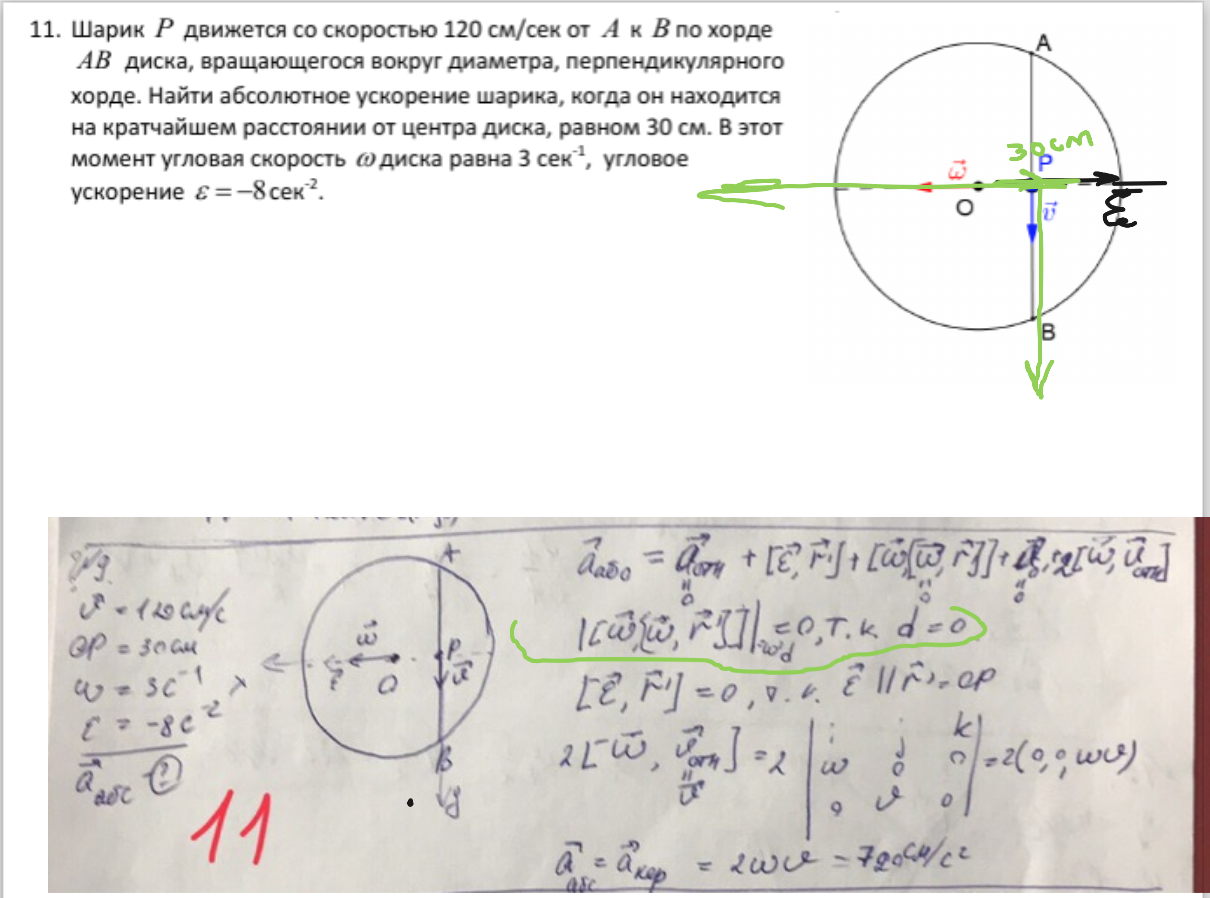 11. Шарик P движется со скоростью 120 см/сек от A к B по хорде
AB диска, вращающегося вокруг диаметра, перпендикулярного
хорде. Найти абсолютное ускорение шарика, когда он находится
на кратчайшем расстоянии от центра диска, равном 30 см. В этот
момент угловая скорость ω диска равна 3 сек⁻¹, угловое
ускорение ε = −8 сек⁻².
A
30 см
P
ω⃗
O
v⃗
ε
B
v = 120 см/с
OP = 30 см
ω = 3 с⁻¹
ε = -8 с⁻²
a⃗абс
11
A
ω⃗
P
O
x
B
y
a⃗абс = a⃗отн + [ε⃗, r⃗'] + [ω⃗[ω⃗, r⃗']] + 2[ω⃗, v⃗отн]
0 0 0
|[ω⃗[ω⃗, r⃗']]| = 0, т.к. d = 0
ω²d
[ε⃗, r⃗'] = 0, т.к. ε⃗ || r⃗' = OP
2[ω⃗, v⃗отн] = 2 | i j k | ω 0 0 | 0 v 0 | = 2(0, 0, ωv)
v⃗
a⃗абс = a⃗кор = 2ωv = 720 см/с²